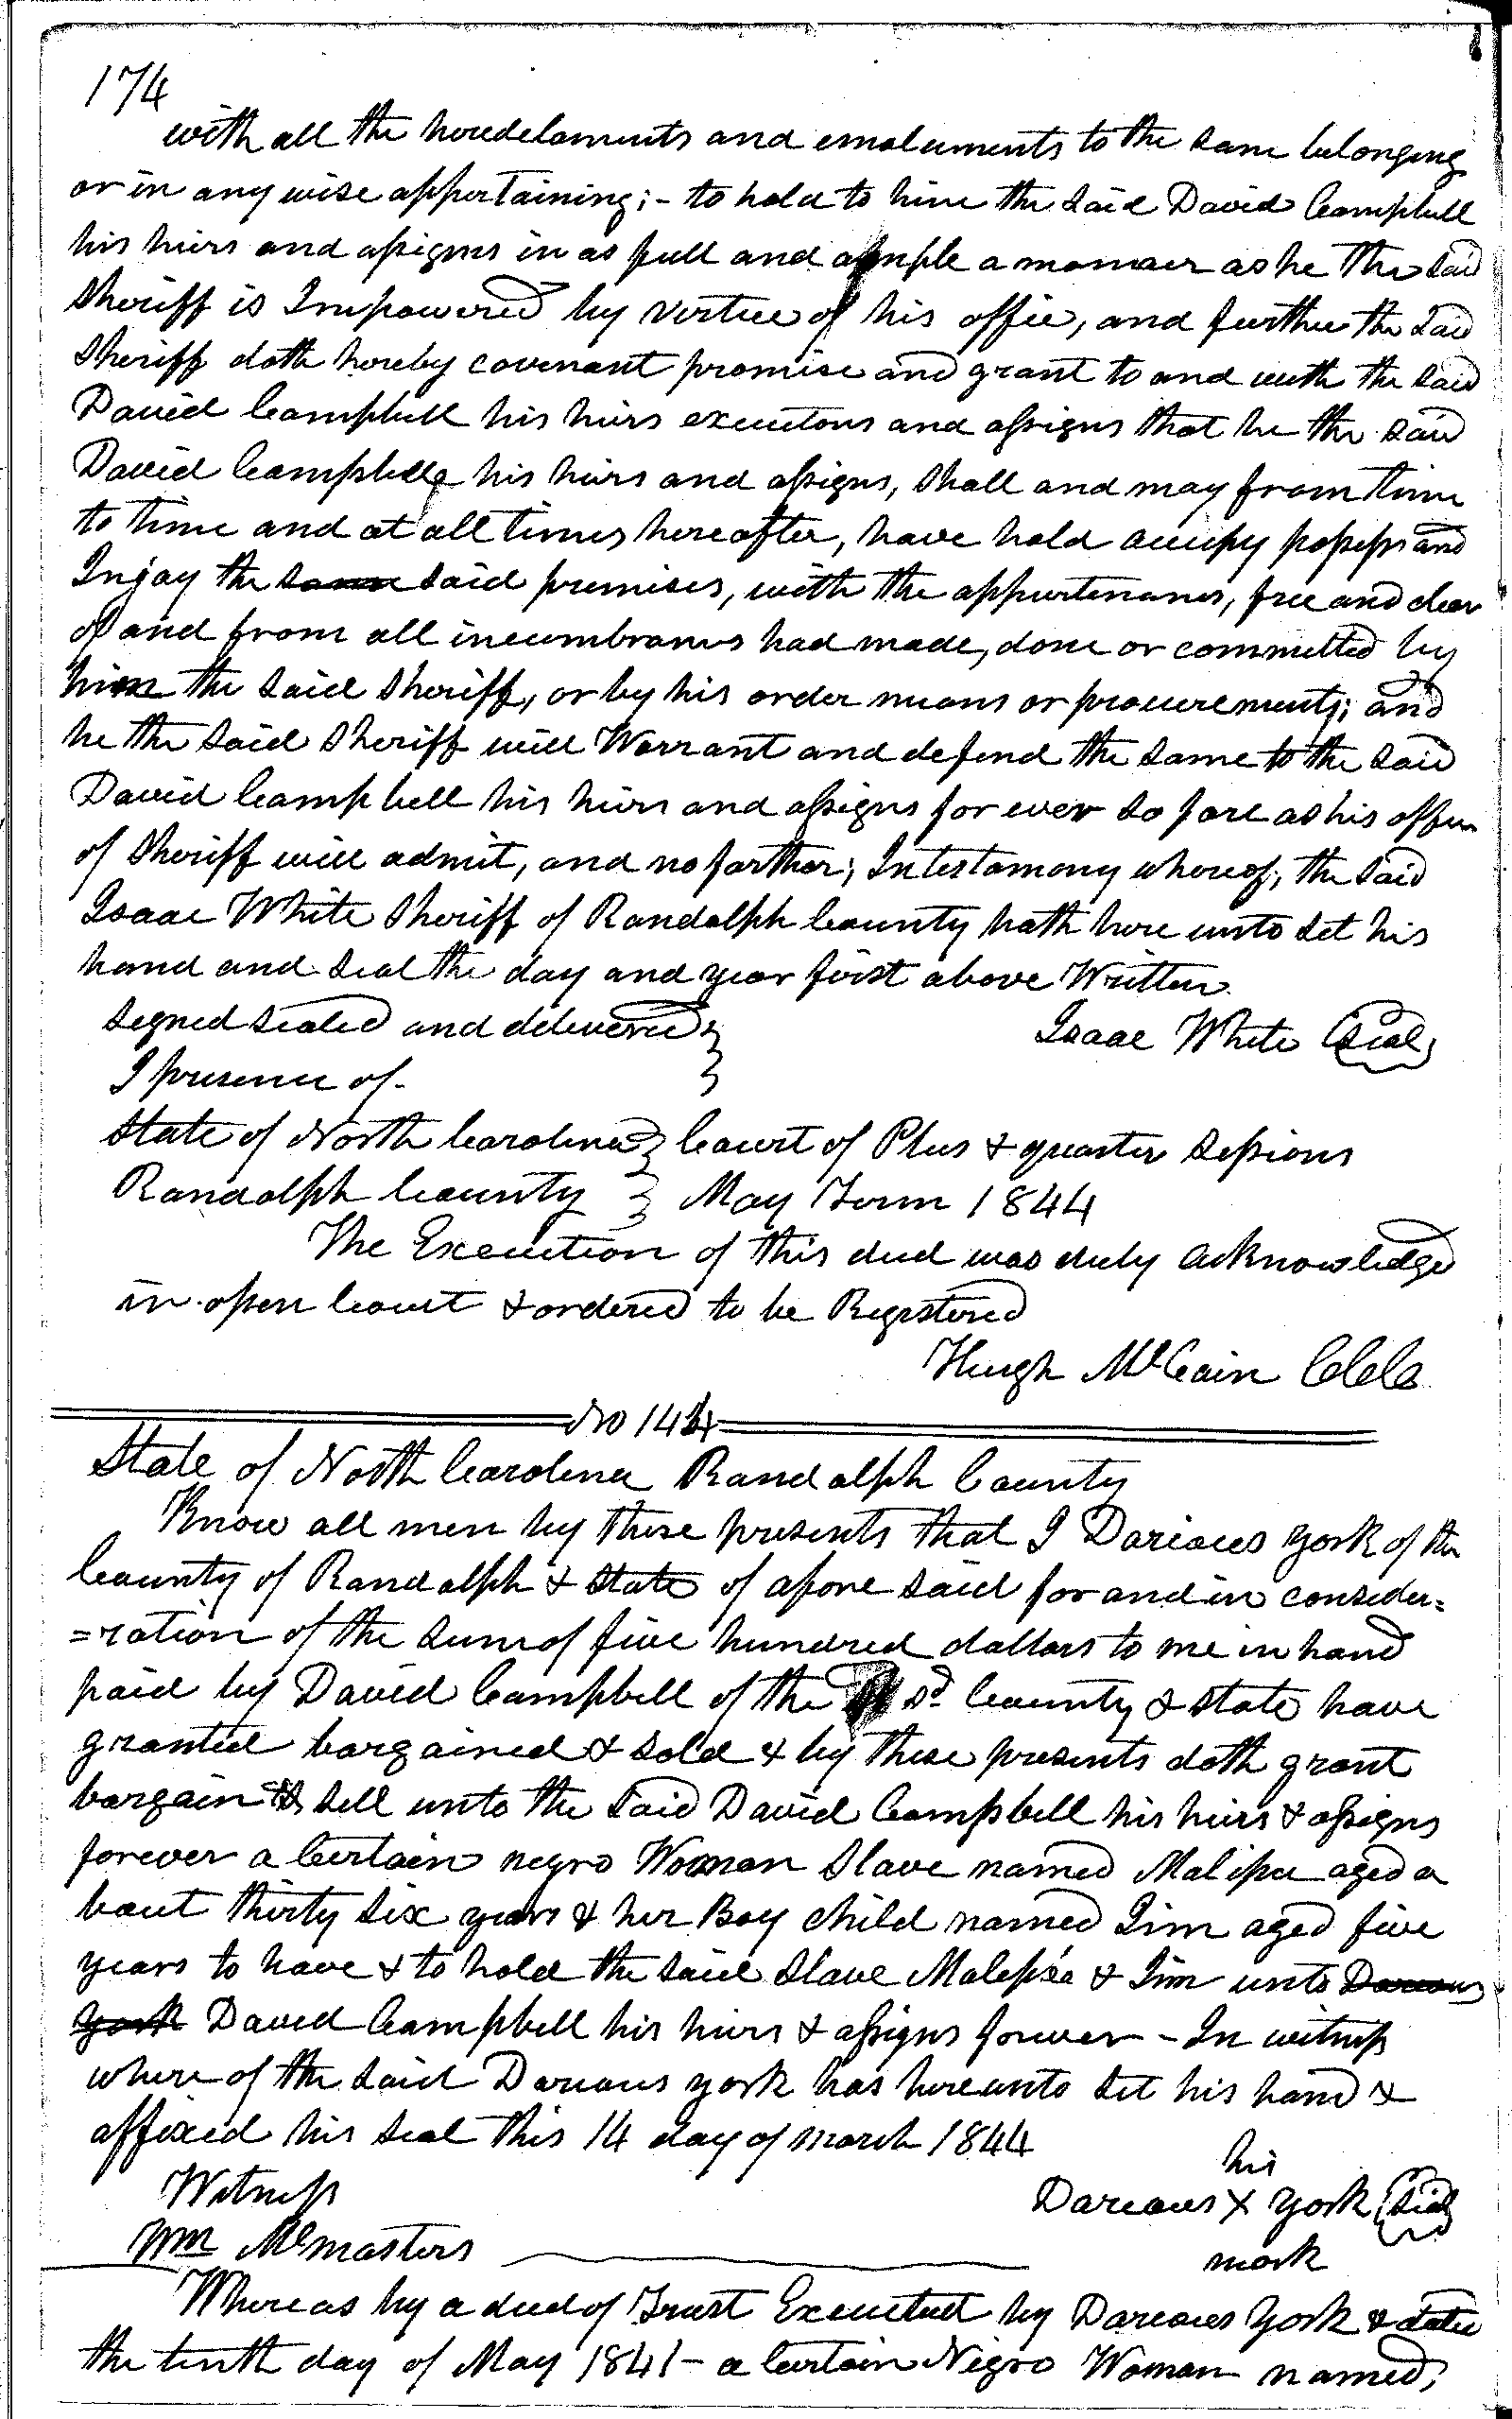 174
with all the heredelaments and emoluments to the same belonging
or in any wise appertaining; - to hold to him the said David Campbell
his heirs and assigns in as full and ample a manner as he the said
Sheriff is Impowered by vertue of his office, and further the said
Sheriff doth hereby covenant promise and grant to and with the said
David Campbell his heirs executors and assigns that he the said
David Campbell his heirs and assigns, shall and may from time
to time and at all times hereafter, have hold occupy possess and
Injoy the same said premises, with the appurtenances, free and clear
of and from all incumbrances had made, done or committed by
him the said Sheriff, or by his order means or procurements; and
he the said Sheriff will Warrant and defend the same to the said
David Campbell his heirs and assigns for ever so fare as his office
of Sheriff will admit, and no farther; Intestamony whereof, the said
Isaac White Sheriff of Randolph County hath here unto set his
hand and seal the day and year first above Written.
Signed sealed and delivered
Isaac White (Seal)
I presence of -
State of North Carolina } Court of Pleas & quarter Sessions
Randolph County } May Term 1844
The Execution of this deed was duly acknowledged
in open Court & ordered to be Registered
Hugh McCain ClC
No 144
State of North Carolina Randolph County
Know all men by these presents that I Darious York of the
County of Randolph & State of afore said for and in consider=
=ration of the sum of five hundred dollars to me in hand
paid by David Campbell of the sd. County & State have
granted bargained & sold & by these presents doth grant
bargain & sell unto the said David Campbell his heirs & assigns
forever a Certain negro Woman Slave named Malissa aged a
bout thirty six years & her Boy child named Jim aged five
years to have & to hold the said Slave Malissa & Jim unto Darious
York David Campbell his heirs & assigns forever - In witness
where of the said Darious York has hereunto set his hand &
affixed his seal this 14 day of march 1844
his
Witness
Darious X York (Seal)
Wm McMasters
mark
Whereas by a deed of Trust Executed by Darious York & dated
the tenth day of May 1841 - a Certain Negro Woman named,